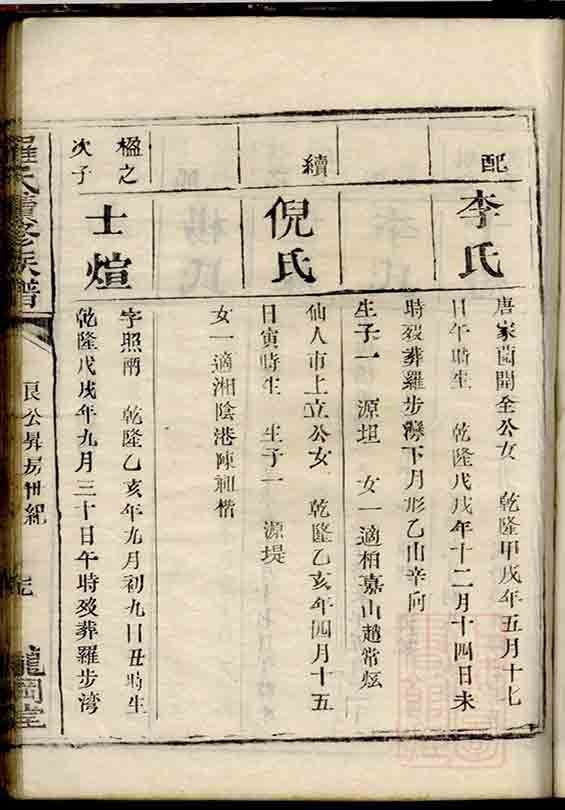 配
李氏
唐家園開全公女 乾隆甲戌年五月十七
日午時生 乾隆戊戌年十二月十四日未
時歿葬羅步灣下月形乙山辛向
生子一 源坦 女一適相嘉山趙常炫
續
倪氏
仙人市上立公女 乾隆乙亥年四月十五
日寅時生 生子一 源堤
女一適湘陰港陳和楷
楹之
次子
士煊
字照南 乾隆乙亥年九月初九日丑時生
乾隆戊戌年九月三十日午時歿葬羅步湾
羅氏續修族譜
良公昇房世紀
龍岡堂